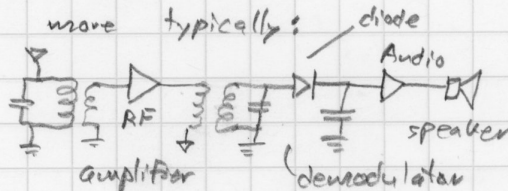 more typically: diode
Audio
RF
speaker
amplifier demodulator